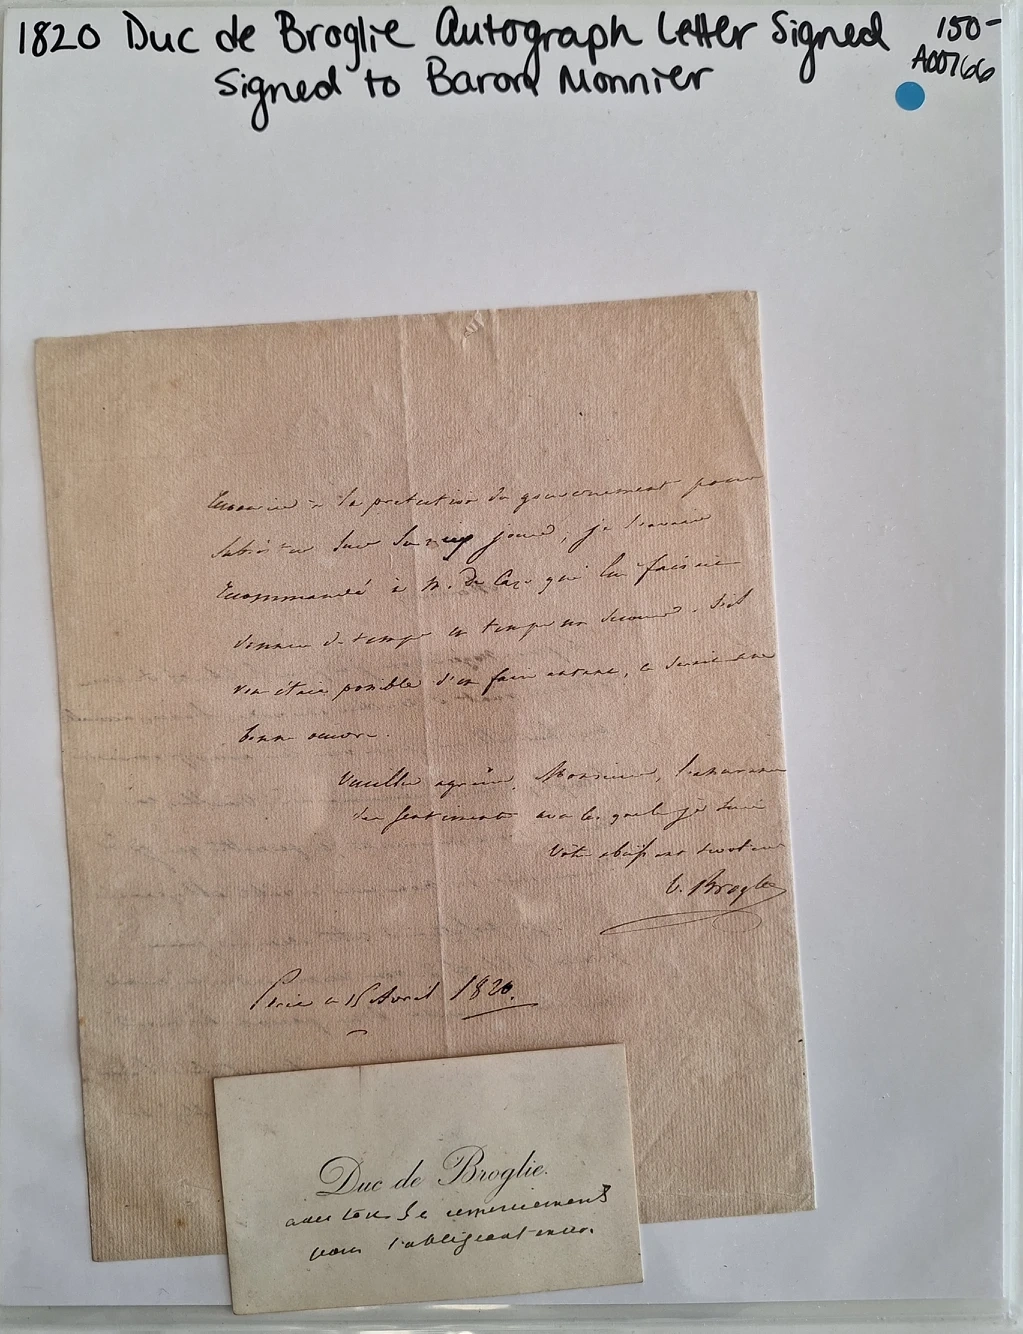 1820 Duc de Broglie Autograph Letter Signed 150-
A00766
Signed to Baron Monnier
à la protection du gouvernement pour
jours, je l'avais
recommandé à M. de Caze qui lui faisait
donner de temps en temps un secours. S'il
était possible d'en faire autant, ce serait une
bonne œuvre.
Veuillez agréer, Monsieur, l'assurance
des sentiments avec lesquels je suis
Votre
V. Broglie
Paris ce 15 Avril 1820.
Duc de Broglie.
avec tous ses remerciements
pour l'obligeant envoi.